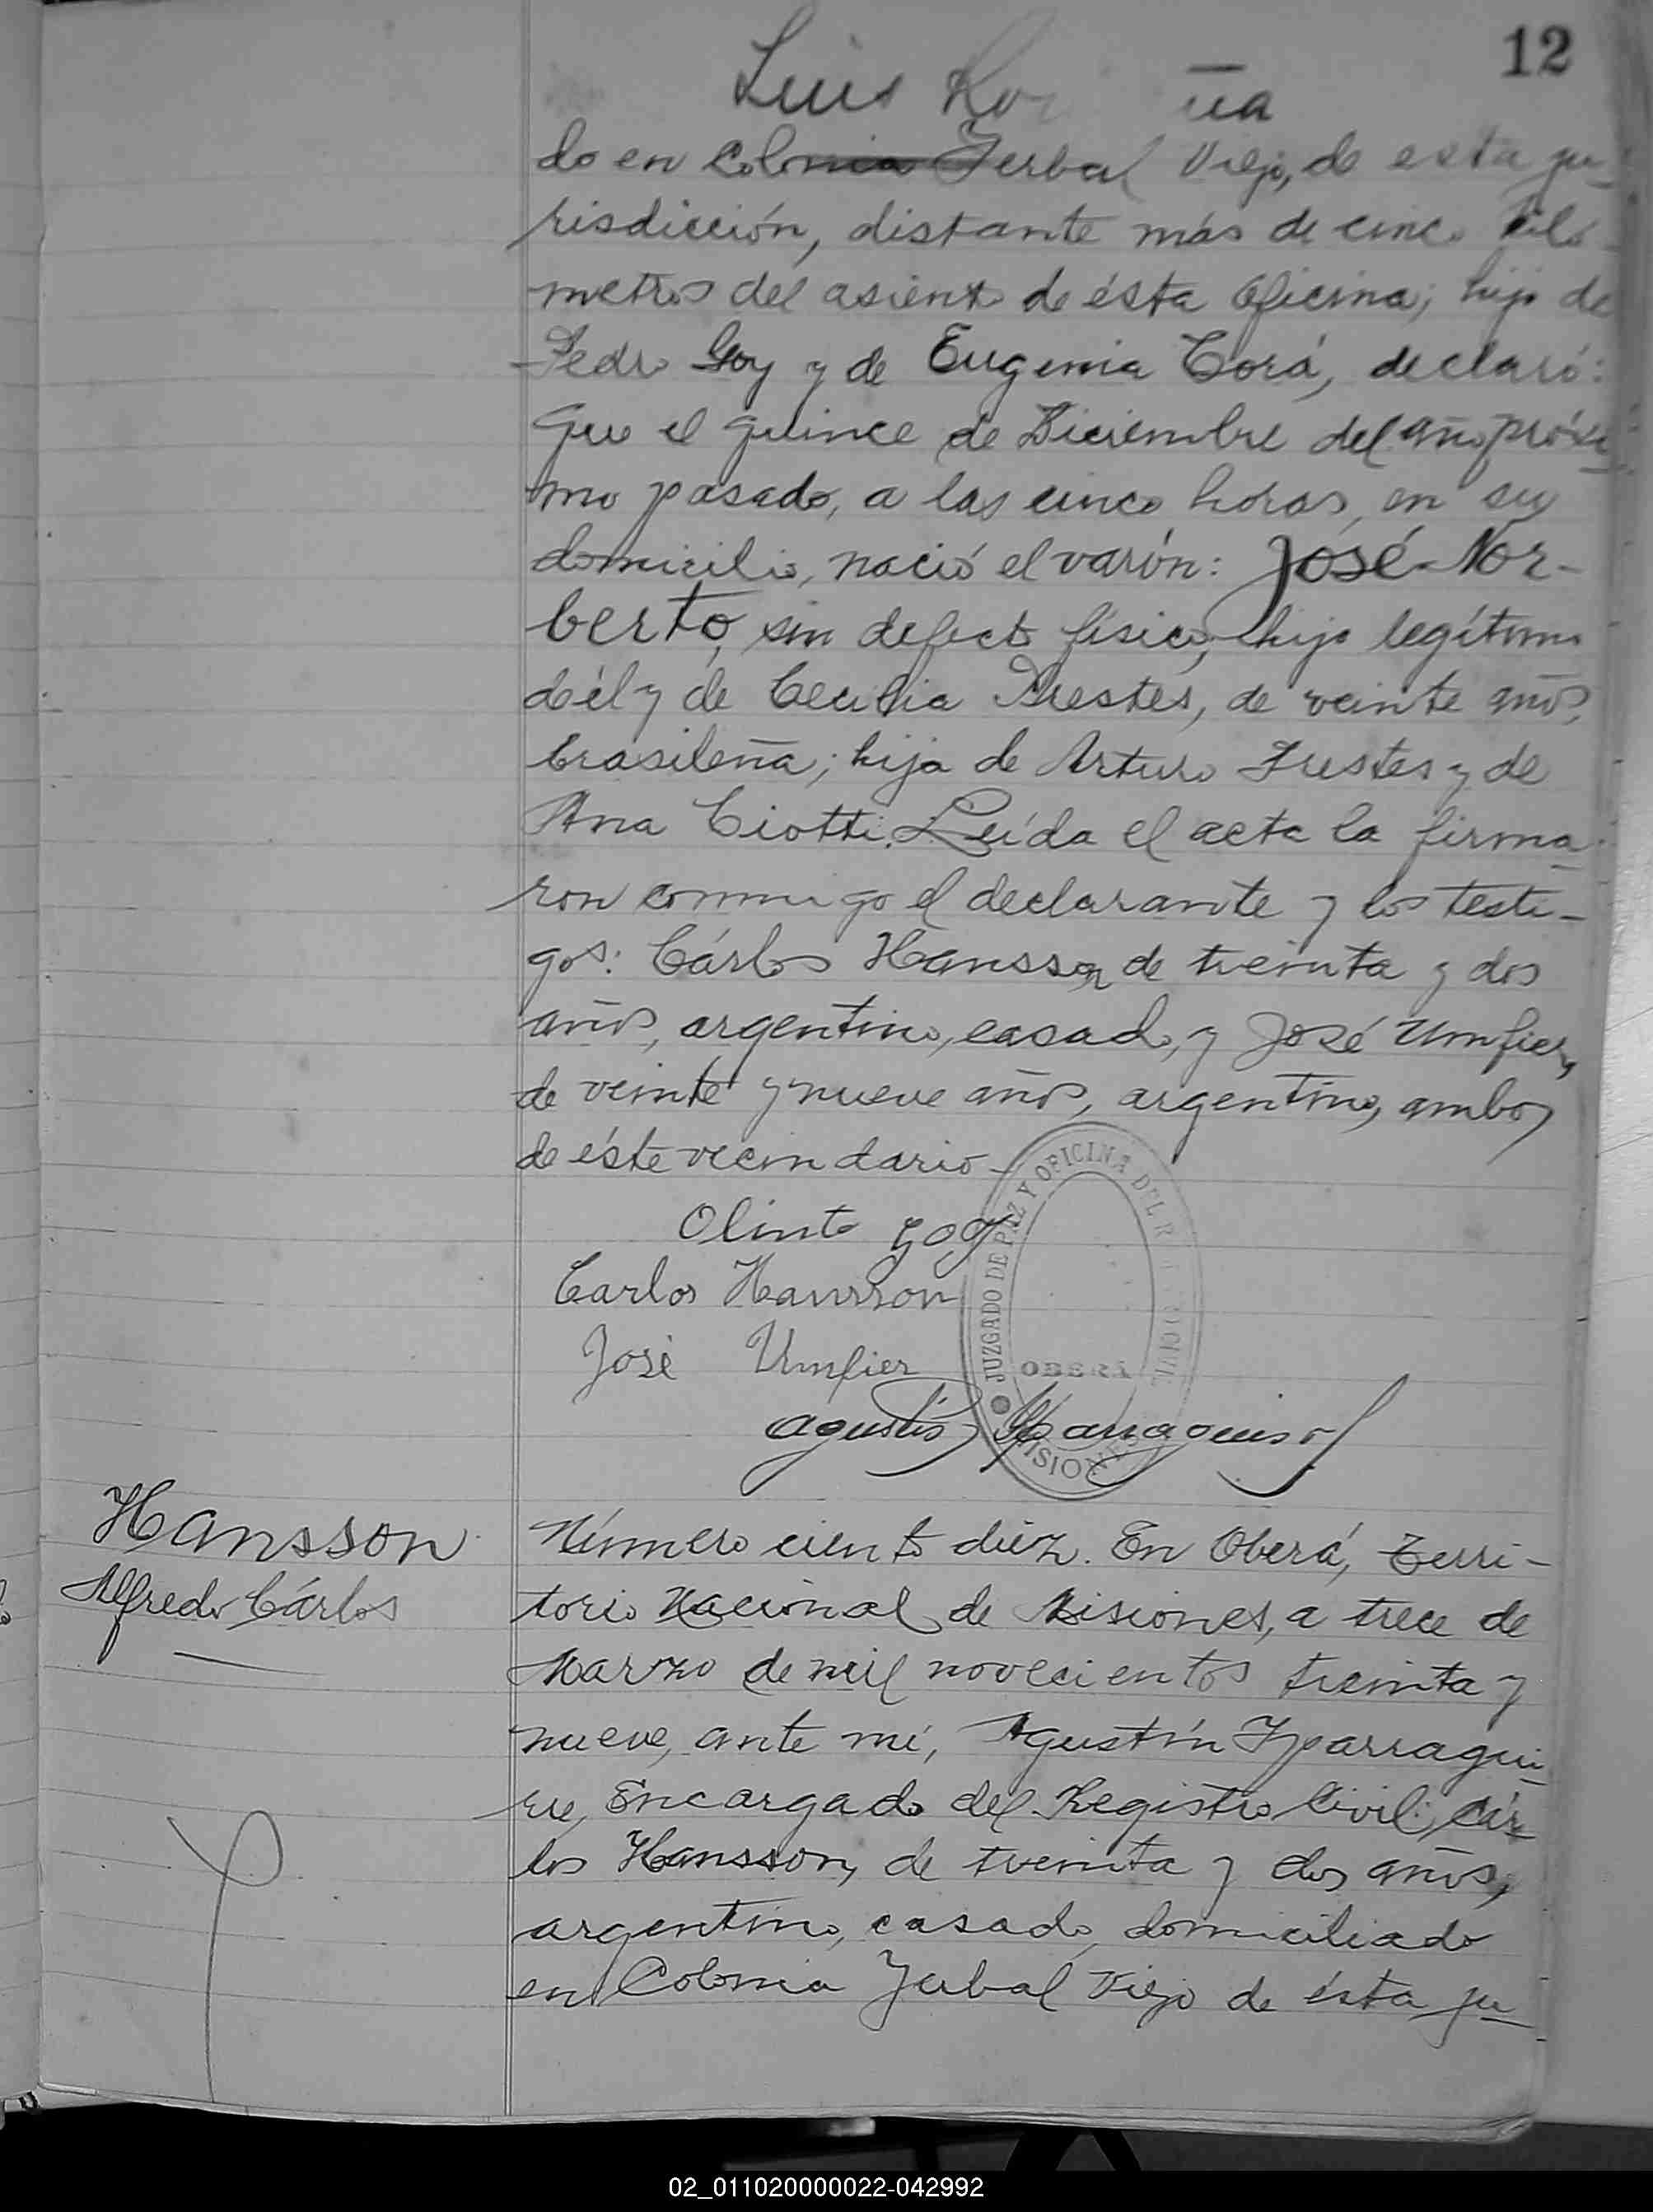 12
Luis
do en Colonia Yerbal Viejo, de esta ju-
risdicción, distante más de cinco kiló-
metros del asiento de ésta Oficina; hijo de
Pedro Goy y de Eugenia Corá, declaró:
Que el quince de Diciembre del año próxi-
mo pasado, a las cinco horas, en su
domicilio, nació el varón: José Nor-
berto, sin defecto físico, hijo legítimo
de él y de Cecilia Prestes, de veinte años,
brasileña; hija de Arturo Prestes y de
Ana Ciotti. Leída el acta la firma-
ron conmigo el declarante y los testi-
gos: Cárlos Hansson, de treinta y dos
años, argentino, casado, y José Umfier,
de veinte y nueve años, argentino, ambos
de éste vecindario-
Olinto Goy
Carlos Hansson
José Umfier
Agustín Yparraguirre
JUZGADO DE PAZ Y OFICINA DEL R CIVIL
OBERÁ
MISIONES
Hansson
Alfredo Cárlos
Número ciento diez. En Oberá, Terri-
torio Nacional de Misiones, a trece de
Marzo de mil novecientos treinta y
nueve, ante mí, Agustín Yparragui-
rre, Encargado del Registro Civil, Cár-
los Hansson, de treinta y dos años,
argentino, casado, domiciliado
en Colonia Yerbal Viejo de ésta ju-
02_011020000022-042992